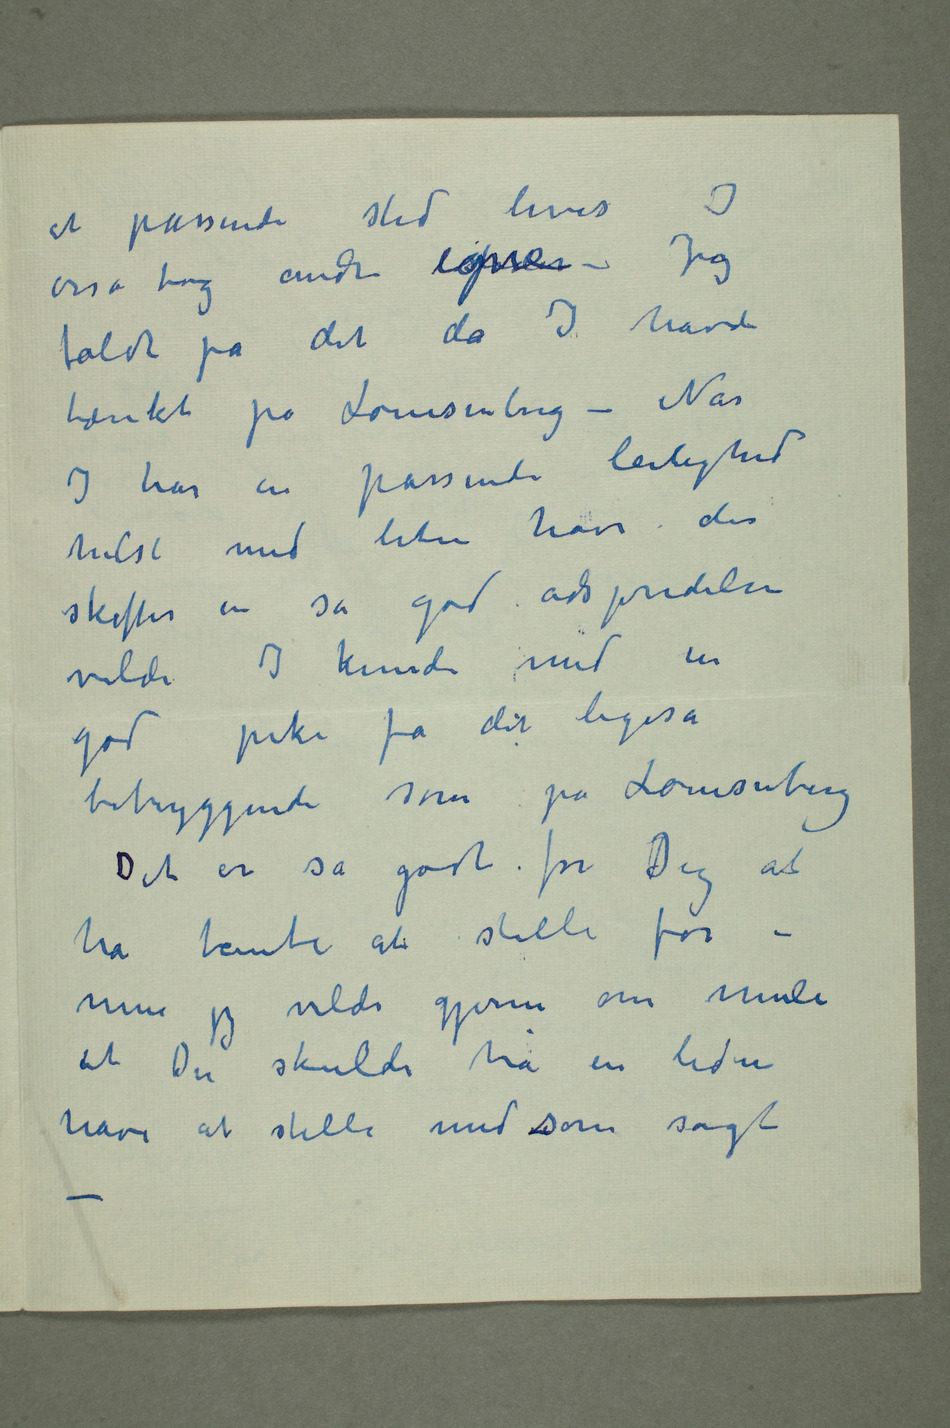 et passende sted hvis I
også tog andre –  Jeg
faldt på det da I havde
tænkt på Louisenberg – Når
I har en passende leilighed
helst med liten have der
skaffer en så god adspredelse
vilde I kunde med en
god pike få det ligeså
betryggende som på Louisenberg
Det er så godt for Dig at
ha tante at stelle for –
men jeg vilde gjerne om mule
at Du skulde ha en liden
have at stelle med som sagt
—